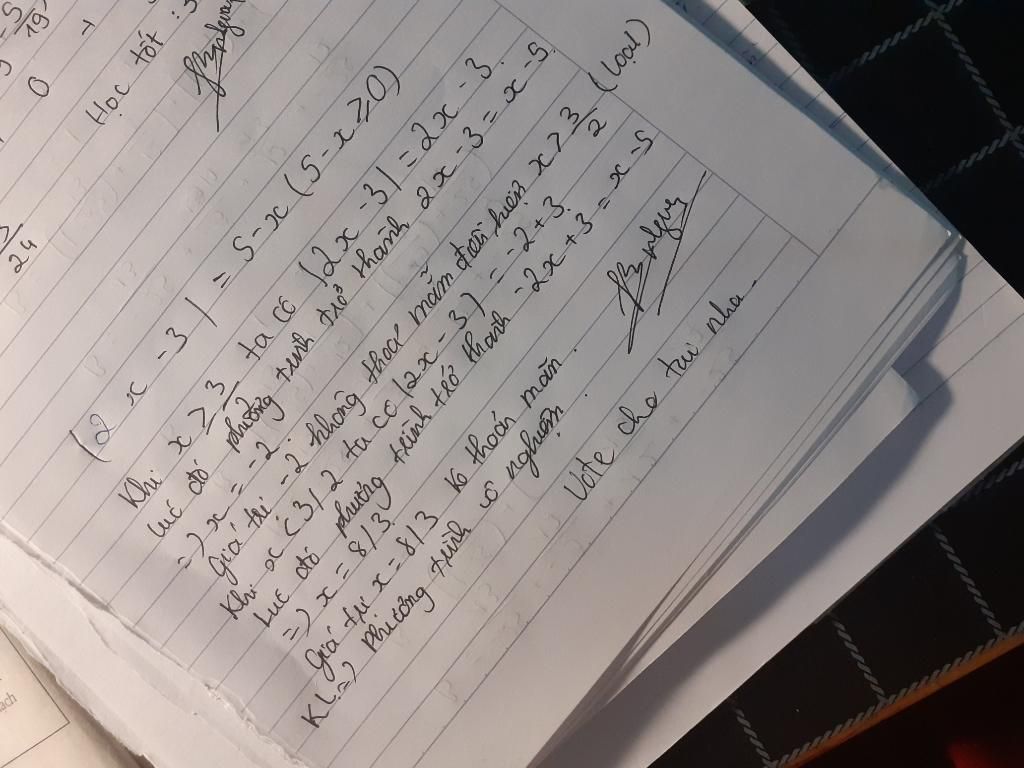 5/19
0
Học tốt :3
3/24
|2x - 3| = 5 - x (5 - x ≥ 0)
Khi x ≥ 3/2 ta có |2x - 3| = 2x - 3.
lúc đó phương trình trở thành 2x - 3 = x - 5
=> x = -2
giá trị -2 không thoả mãn điều kiện x ≥ 3/2 (loại)
Khi x < 3/2 ta có |2x - 3| = -2 + 3.
Lúc đó phương trình trở thành -2x + 3 = x - 5
=> x = 8/3
giá trị x = 8/3 ko thoản mãn.
KL => phương trình vô nghiệm.
Vote cho tui nha.
ạch